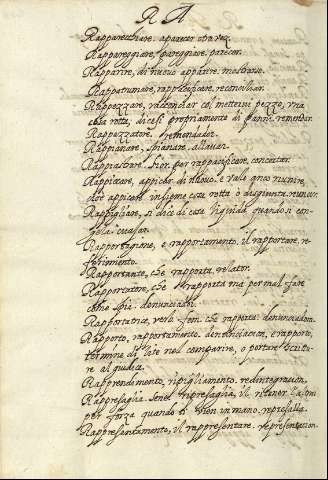 R A
Rapparecchiare. aparecer otra vez.
Rappareggiare, pareggiare. parecer.
Rapparire, di nuovo apparire. mostrarse.
Rappatumare, rappacificare, reconciliar.
Rappezzare, racconciar col metterui pezzo, vna
cosa rotta, dicesi propriamente di panni. remendar.
Rappezzatore. remendador.
Rappianare, spianare. allanar.
Rappiastrare. per rappacificare, concertar.
Rappiccare, appiccar di nuouo. e vale anco riunire,
doe appiccar insieme cosa rotta o disgiunta. reunir.
Rappigliare, si dice di cosa liquida quando si con-
gela. cuajar.
Rapportagione, e rapportamento, il rapportare. re-
ferimento.
Rapportante, che rapporta. relator.
Rapportatore, che rapporta ma per mal fare
come spia. denunciador.
Rapportatrice, verb. fem. che rapporta. denunciadora.
Rapporto, rapportamento. denunciacion, e rapporto,
termine di comparire, o portare scrittu-
re al giudice.
Rapprendimento, ripigliamento. redintegracion.
Rappresaglia. ripresaglia, il ritener
per forza quando ti vien in mano. represalla.
Rappresentamento, il rappresentare. representacion.